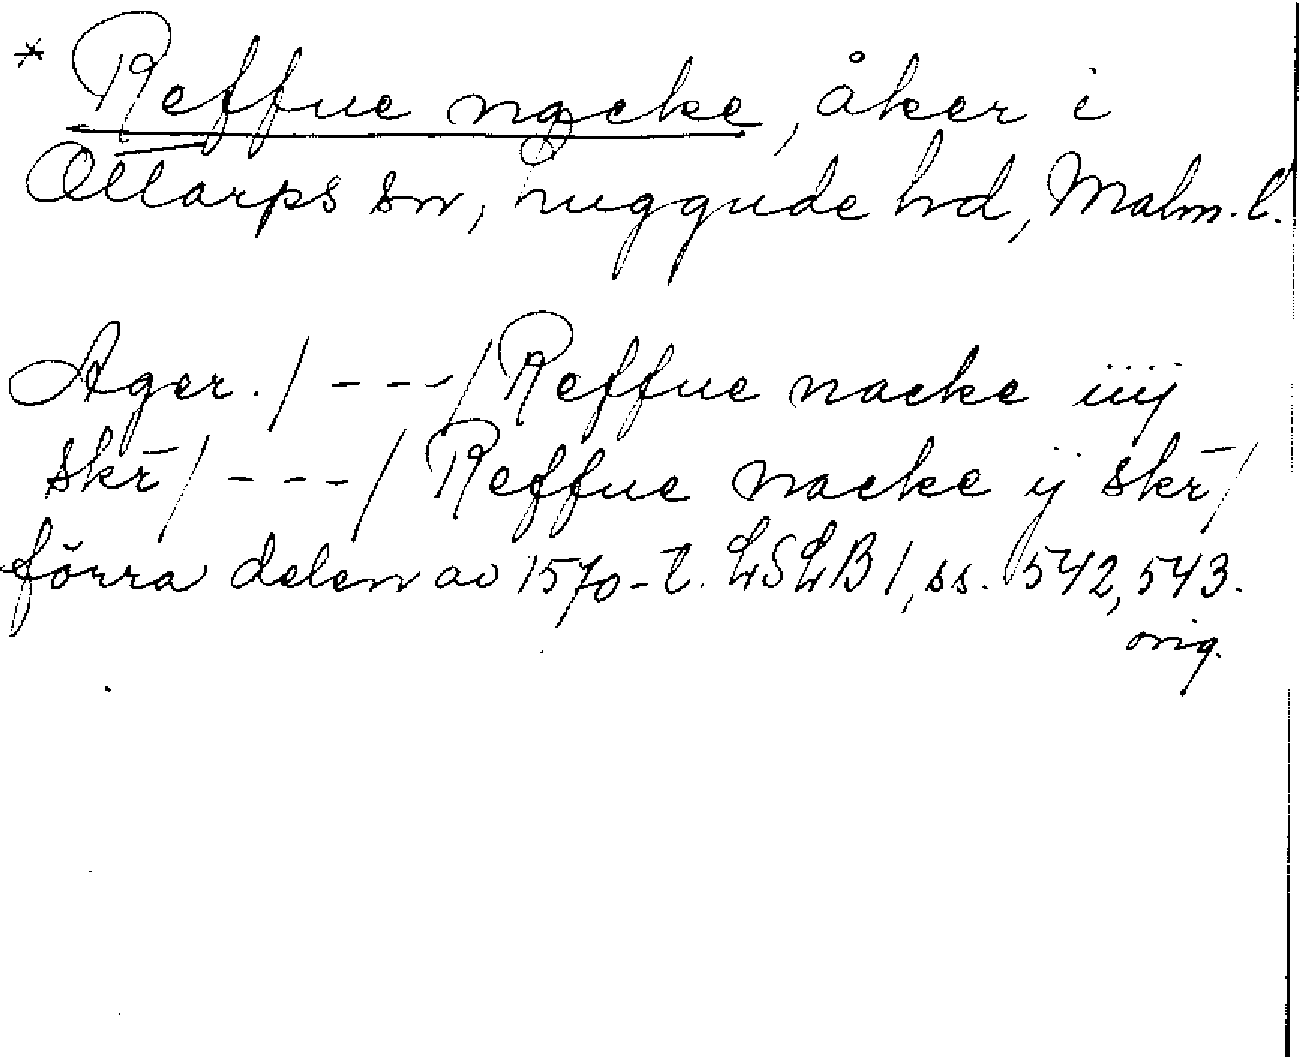 * Reffue nacke, åker i
Ottarps sn, Luggude hd, Malm. l.
Ager. / - - - / Reffue nacke iiij
skr̄ / - - - / Reffue nacke ij skr̄ /
förra delen av 1570-t. LSLB 1, ss. 542, 543.
orig.